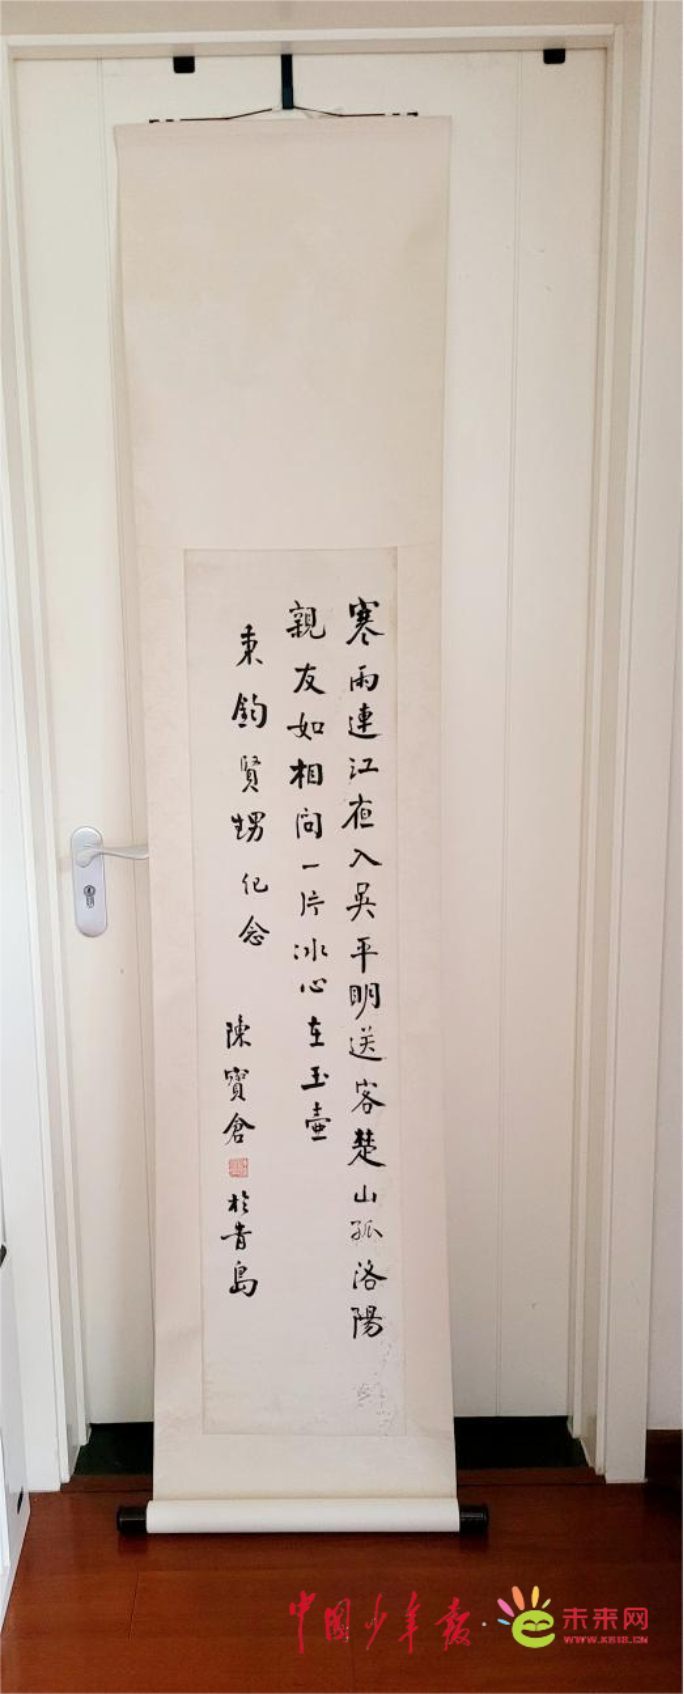 寒雨連江夜入吳平明送客楚山孤洛陽
親友如相問一片冰心在玉壺
秉鈞賢甥紀念
陳寶倉
於青島
中国少年报·未来网
WWW.K618.CN